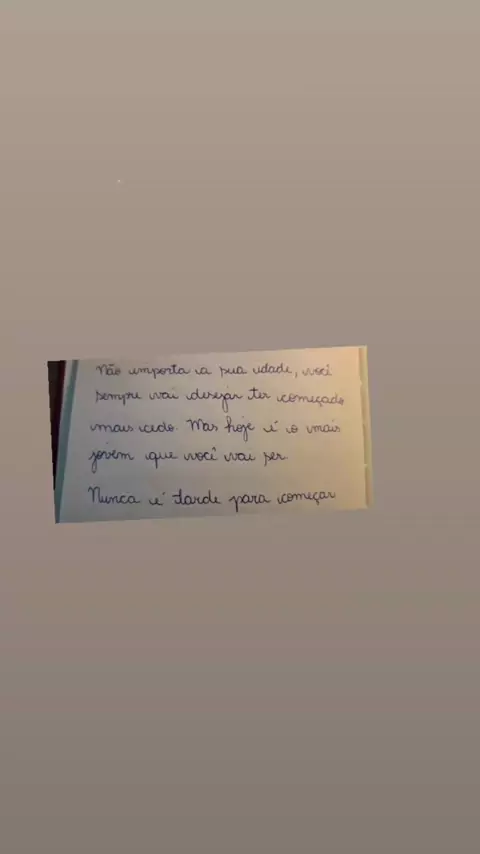 Não importa a sua idade, você
sempre vai desejar ter começado
mais cedo. Mas hoje é o mais
jovem que você vai ser.
Nunca é tarde para começar